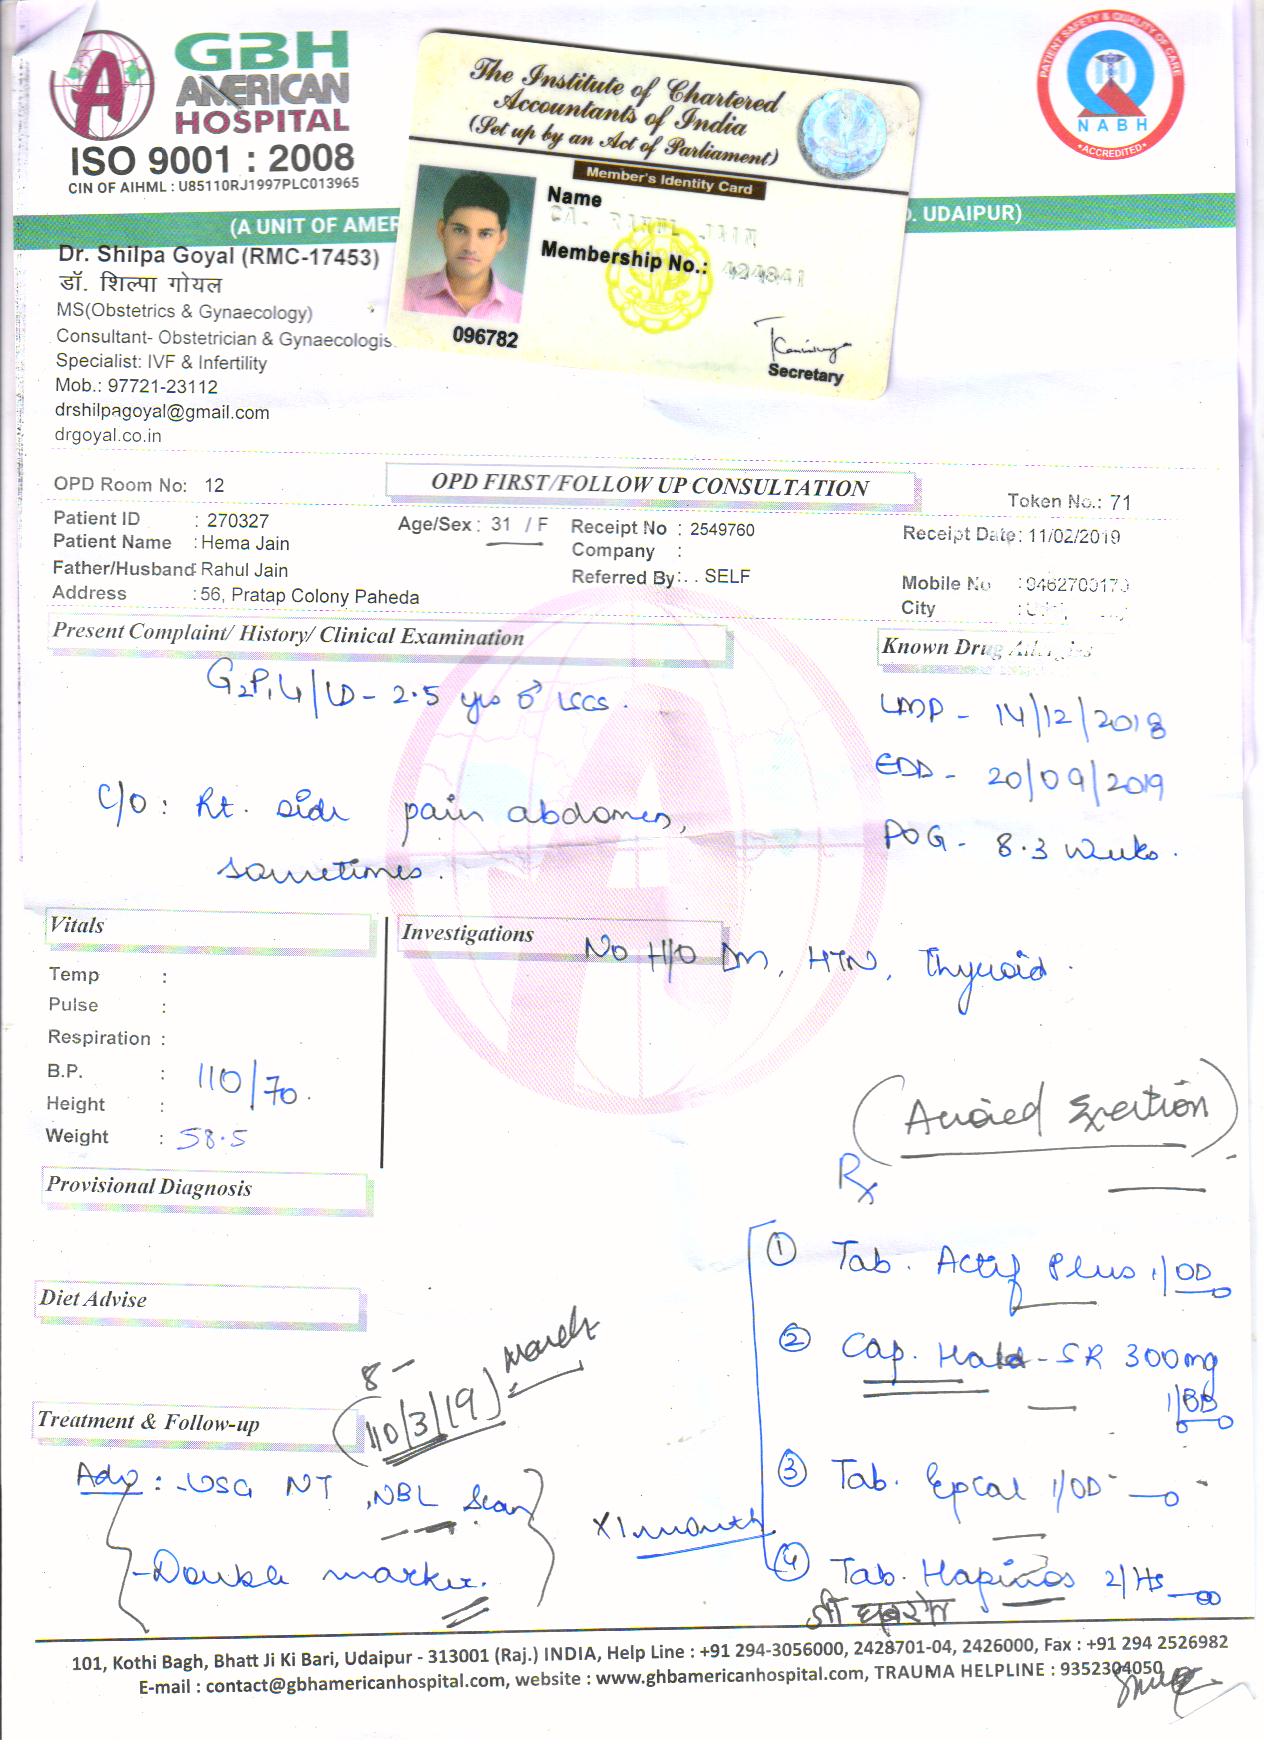 GBH
AMERICAN
HOSPITAL
ISO 9001 : 2008
CIN OF AIHML : U85110RJ1997PLC013965
The Institute of Chartered
Accountants of India
(Set up by an Act of Parliament)
Member's Identity Card
Name
CA. RAHUL JAIN
Membership No.: 424841
096782
Secretary
PATIENT SAFETY & QUALITY OF CARE
NABH
ACCREDITED
(A UNIT OF AMER
D. UDAIPUR)
Dr. Shilpa Goyal (RMC-17453)
डॉ. शिल्पा गोयल
MS(Obstetrics & Gynaecology)
Consultant- Obstetrician & Gynaecologis
Specialist: IVF & Infertility
Mob.: 97721-23112
drshilpagoyal@gmail.com
drgoyal.co.in
OPD Room No: 12
OPD FIRST/FOLLOW UP CONSULTATION
Token No.: 71
Patient ID : 270327 Age/Sex : 31 / F Receipt No : 2549760 Receipt Date: 11/02/2019
Patient Name : Hema Jain Company :
Father/Husband: Rahul Jain Referred By: . . SELF Mobile No :
Address : 56, Pratap Colony Paheda City :
Present Complaint/ History/ Clinical Examination
Known Drug Allergies
G2P1L1/LD - 2.5 yrs ♂ LSCS.
LMP - 14/12/2018
EDD - 20/09/2019
POG - 8.3 weeks.
C/O : Rt. side pain abdomen,
sometimes.
Vitals
Investigations
No H/O DM, HTN, Thyroid.
Temp :
Pulse :
Respiration :
B.P. : 110/70.
Height :
Weight : 58.5
(Avoied Exertion)
Rx
Provisional Diagnosis
① Tab. Actif Plus 1/OD
Diet Advise
② Cap. Hald-SR 300mg
1/BD
8 -
(10/3/19) March
Treatment & Follow-up
Adv : - USG NT, NBL Scan
③ Tab. Epcal 1/OD
x 1 month
- Double marker.
④ Tab. Hapinos 2/HS
101, Kothi Bagh, Bhatt Ji Ki Bari, Udaipur - 313001 (Raj.) INDIA, Help Line : +91 294-3056000, 2428701-04, 2426000, Fax : +91 294 2526982
E-mail : contact@gbhamericanhospital.com, website : www.ghbamericanhospital.com, TRAUMA HELPLINE : 9352304050